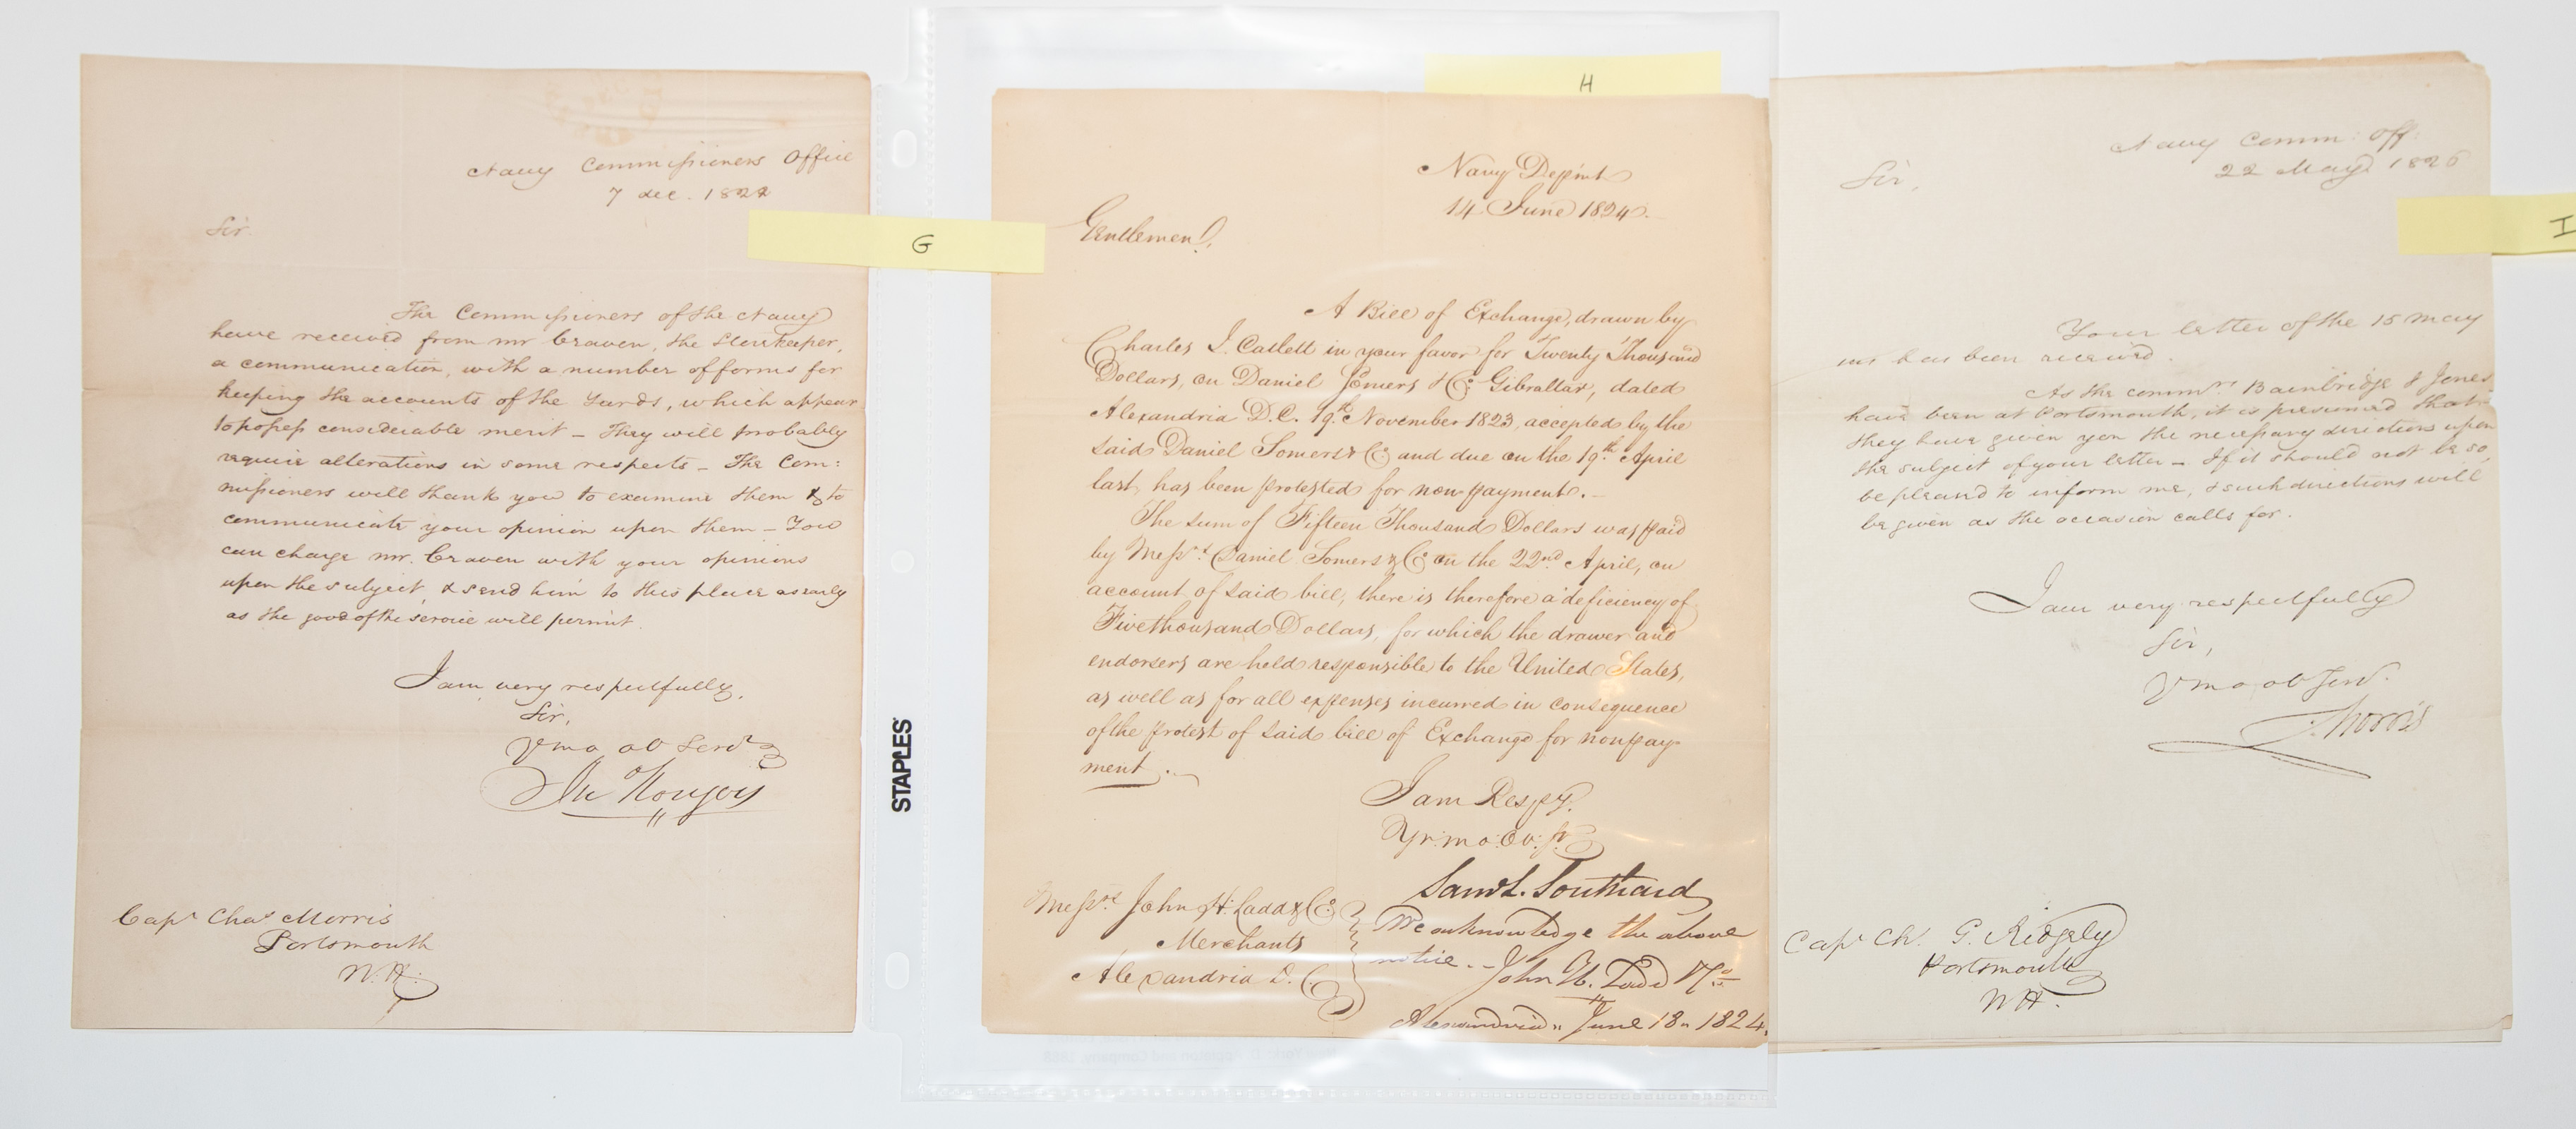 Navy Commissioners Office
7 dec. 1822
Sir.
The Commissioners of the Navy
have received from mr Craven, the Storekeeper,
a communication, with a number of forms for
keeping the accounts of the Yards, which appear
to possess considerable merit – They will probably
require alterations in some respects – The Com:
missioners will thank you to examine them & to
communicate your opinion upon them – You
can charge mr. Craven with your opinions
upon the subject, & send him to this place as early
as the good of the service will permit.
I am very respectfully,
Sir,
Yr mo ob Servt
Jn Rodgers
Capt Chas Morris
Portsmouth
N.H.
G
STAPLES
H
Navy Depmt
14 June 1824.
Gentlemen,
A Bill of Exchange, drawn by
Charles I. Catlett in your favor for Twenty Thousand
Dollars, on Daniel Somers & Co Gibraltar, dated
Alexandria D.C. 19th November 1823, accepted by the
said Daniel Somers & Co and due on the 19th April
last, has been protested for non payment. –
The sum of Fifteen Thousand Dollars was paid
by Messrs Daniel Somers & Co on the 22nd April, on
account of said bill, there is therefore a deficiency of
Five thousand Dollars, for which the drawer and
endorsers are held responsible to the United States,
as well as for all expenses incurred in consequence
of the protest of said bill of Exchange for nonpay
ment. –
I am Respy.
Yr. mo. Ob. St.
Saml. L. Southard
Messrs John H. Ladd & Co
Merchants
Alexandria D.C.
We acknowledge the above
notice. – John H. Ladd & Co
Alexandria June 18 – 1824.
Navy Comm: Off.
22 May 1826
Sir,
I
Your letter of the 15 may
has been received.
As the commrs Bainbridge & Jones
have been at Portsmouth, it is presumed that
they have given you the necessary directions upon
the subject of your letter – If it should not be so,
be pleased to inform me, & such directions will
be given as the occasion calls for.
I am very respectfully
Sir,
Yr mo ob Servt.
Morris
Capt Ch. G. Ridgely
Portsmouth
NH.